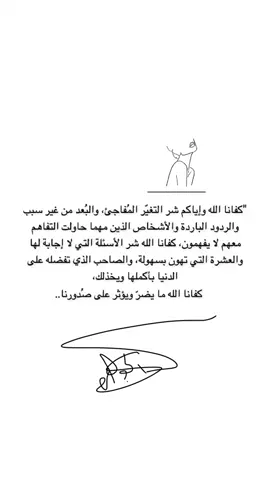 "كفانا الله وإياكم شر التغيّر المُفاجئ، والبُعد من غير سبب
والردود الباردة والأشخاص الذين مهما حاولت التفاهم
معهم لا يفهمون، كفانا الله شر الأسئلة التي لا إجابة لها
والعشرة التي تهون بسهولة، والصاحب الذي تفضله على
الدنيا بأكملها ويخذلك،
كفانا الله ما يضرّ ويؤثر على صُدورنا..